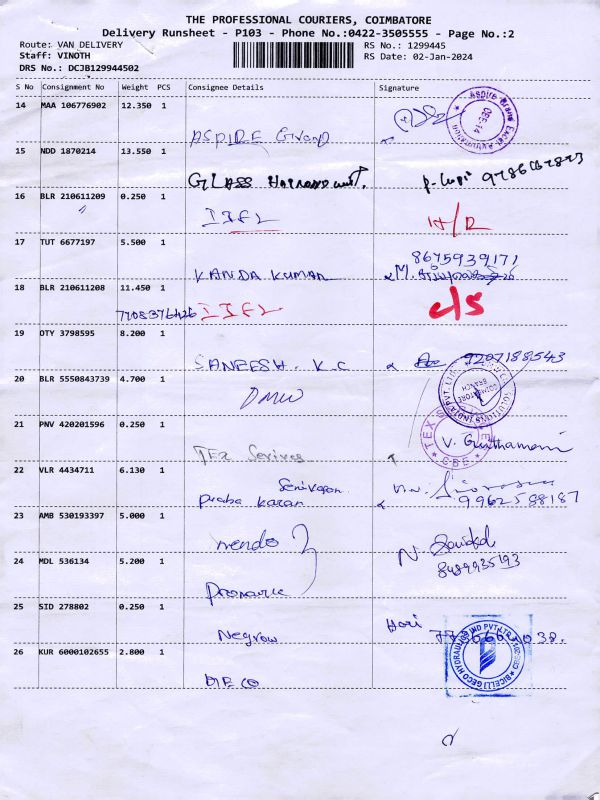 THE PROFESSIONAL COURIERS, COIMBATORE
Delivery Runsheet - P103 - Phone No.:0422-3505555 - Page No.:2
Route: VAN DELIVERY
Staff: VINOTH
DRS No.: DCJB129944502
RS No.: 1299445
RS Date: 02-Jan-2024
S No Consignment No Weight PCS Consignee Details Signature
14 MAA 106776902 12.350 1
ASPIRE Group
15 NDD 1870214 13.550 1
GLASS
16 BLR 210611209 0.250 1
IIFL H/R
17 TUT 6677197 5.500 1
8675939171
KANDA KUMAR
18 BLR 210611208 11.450 1
7708376426 IIFL c/s
19 OTY 3798595 8.200 1
SANEESH. K.C 9207188543
20 BLR 5550843739 4.700 1
DMW
COIMBATORE BRANCH
21 PNV 420201596 0.250 1
V.
TEX
TEX CBE
22 VLR 4434711 6.130 1
Praba Karan
9962588187
23 AMB 530193397 5.000 1
24 MDL 536134 5.200 1
8489935193
25 SID 278802 0.250 1
Hari
26 KUR 6000102655 2.800 1
BICELLI GECO HYDRAULICS IND PVT LTD